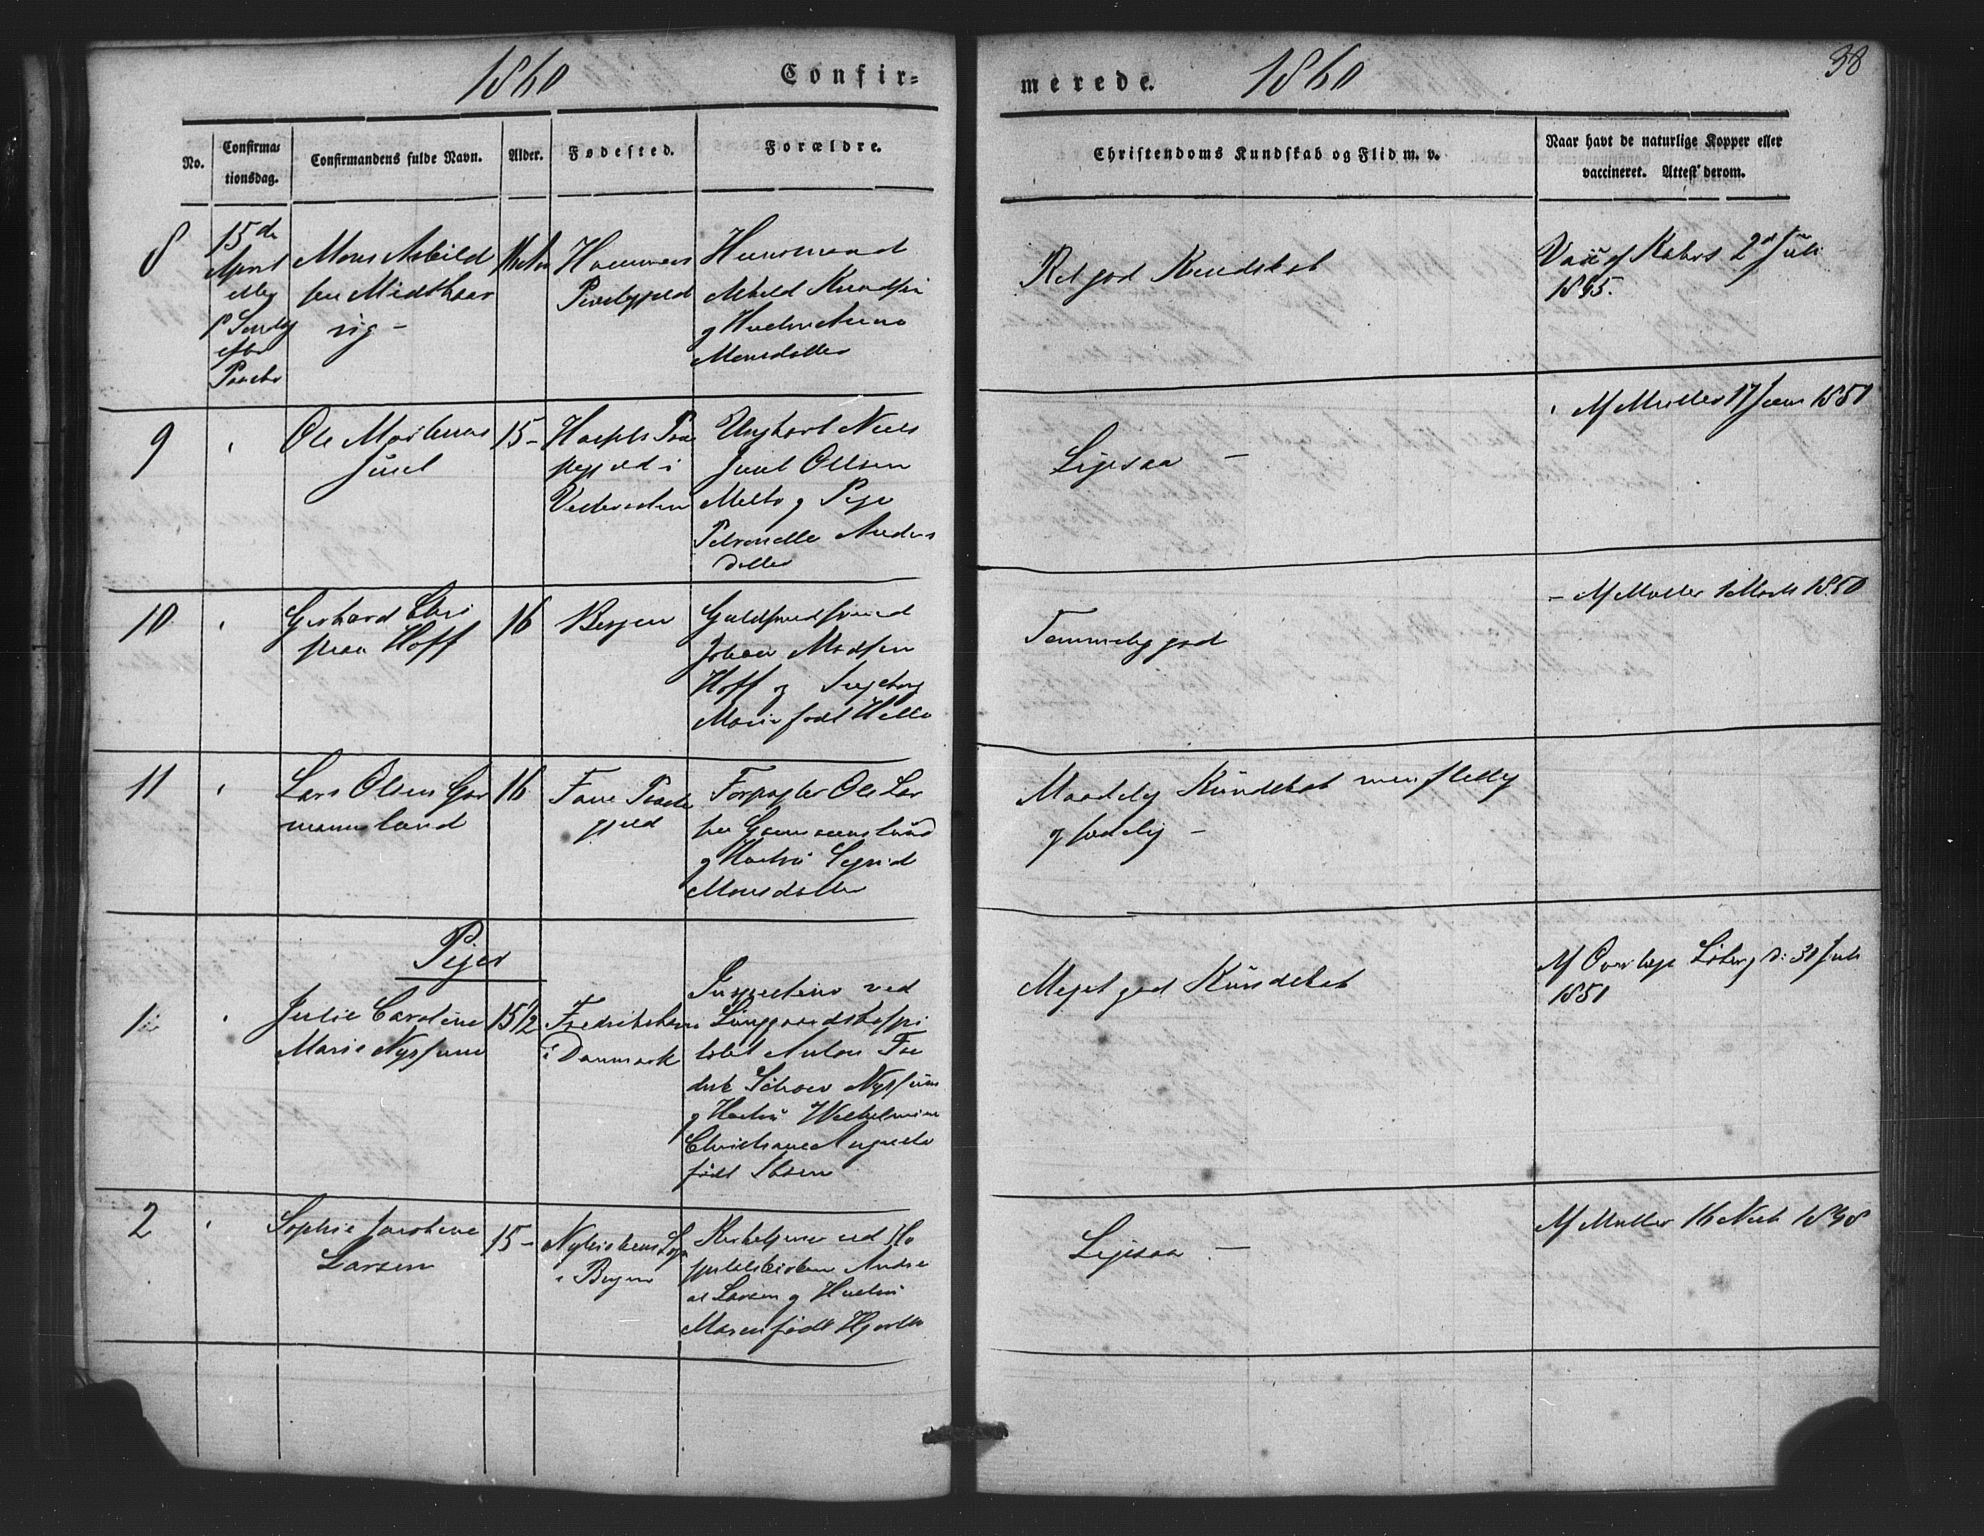 1860 Confir=
merede. 1860
38
No.
Confirma=
tionsdag.
Confirmandens fulde Navn.
Alder.
Fødested.
Forældre.
Christendoms Kundskab og Flid m. v.
Naar havt de naturlige Kopper eller
vaccineret. Attest derom.
8
15de
April
efter
Paaske
Mons
sen Midthaar
vig -
Præstegjeld
Huusmand
Knudsen
og Hustru Anna
Monsdatter
Ret god Kundskab
Vac af 2d Juli
1845.
9
Ole Martinus
Juul
15 -
i
Ungkarl Niels
Juul Olsen
og Pige
Petronelle Anders
datter
Ligesaa -
Af Muller 17 Juni 1850
10
Gerhard Chri
stian Hoff
16
Bergen
Guldsmedsvend
Johan Madsen
Hoff og Ingeborg
Marie født Helle
Temmelig god
- Af Muller 1 Marts 1850
11
Lars Olsen Gar
mannslund
16
Fane Præste
gjeld
Forpagter Ole Lar
sen Garmannslund
og Hustru Sigrid
Monsdatter
Maadelig Kundskab men flittig
og sædelig -
Piger
1
Julie Caroline
Marie Nyssum
15 1/2
Fredrikshavn
i Danmark
Inspecteur ved
Lunggaardshospi
talet Anton Fre
drik Nyssum
og Hustru Wilhelmine
Christiane Augusta
født Ibsen
Meget god Kundskab
Af Overlæge Løberg d: 30 Juli
1851
2
Sophie
Larsen
15 -
Nykirkens Sogn
i Bergen
Kirketjener ved Ho
spitalskirken Andre
as Larsen og Hustru
Maren født Hjorth
Ligesaa -
Af Muller 16 1848